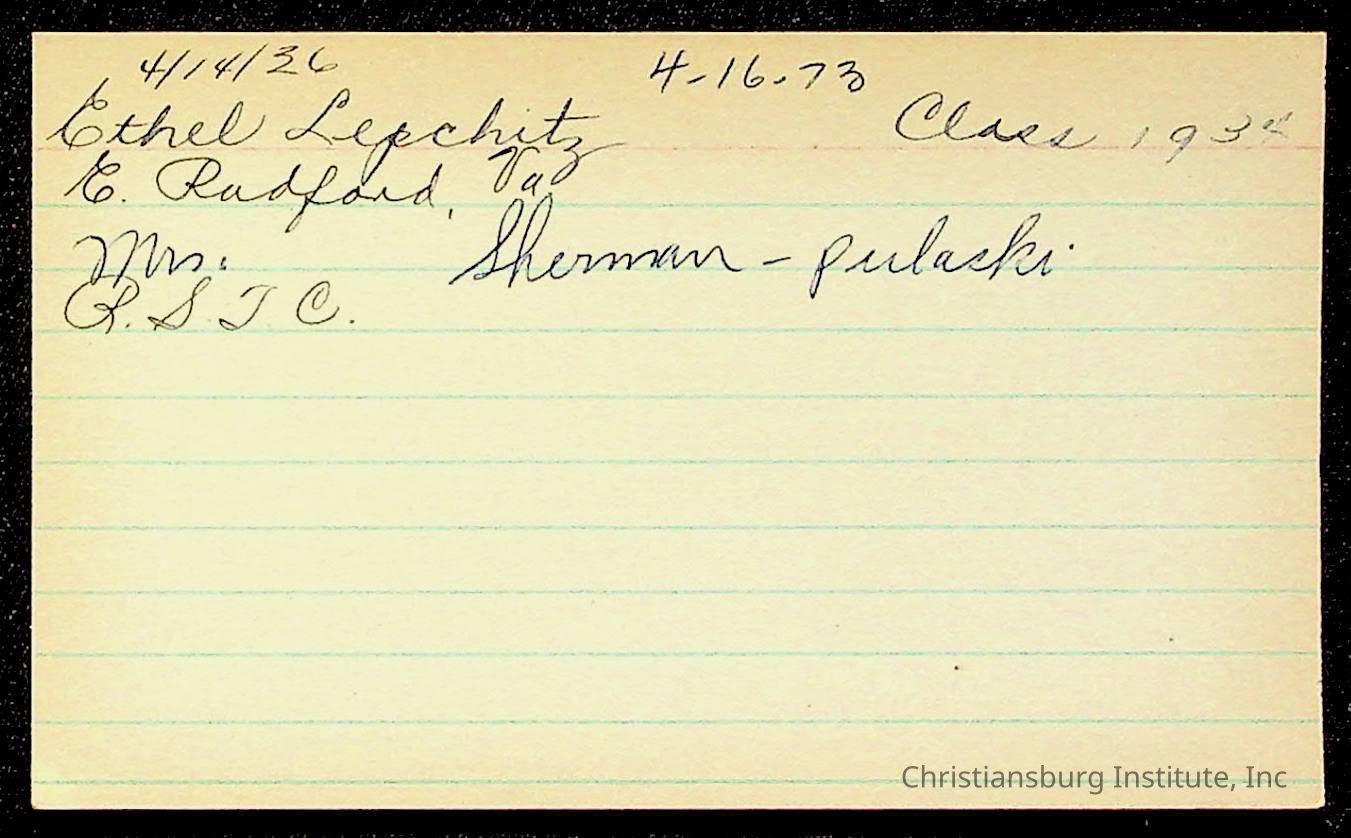 4/14/36 4-16-73
Ethel Lepchitz Class 1934
E. Radford, Va.
Mrs. Sherman - Pulaski
R. S. T. C.
Christiansburg Institute, Inc